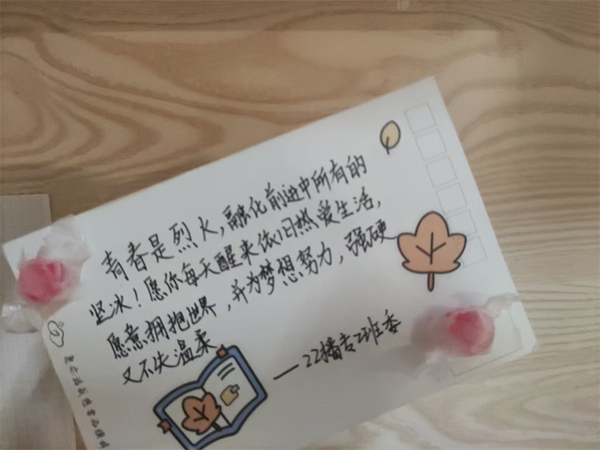 青春是烈火,融化前进中所有的
坚冰!愿你每天醒来依旧热爱生活,
愿意拥抱世界,并为梦想努力,强硬
又不失温柔
——22播音2班委